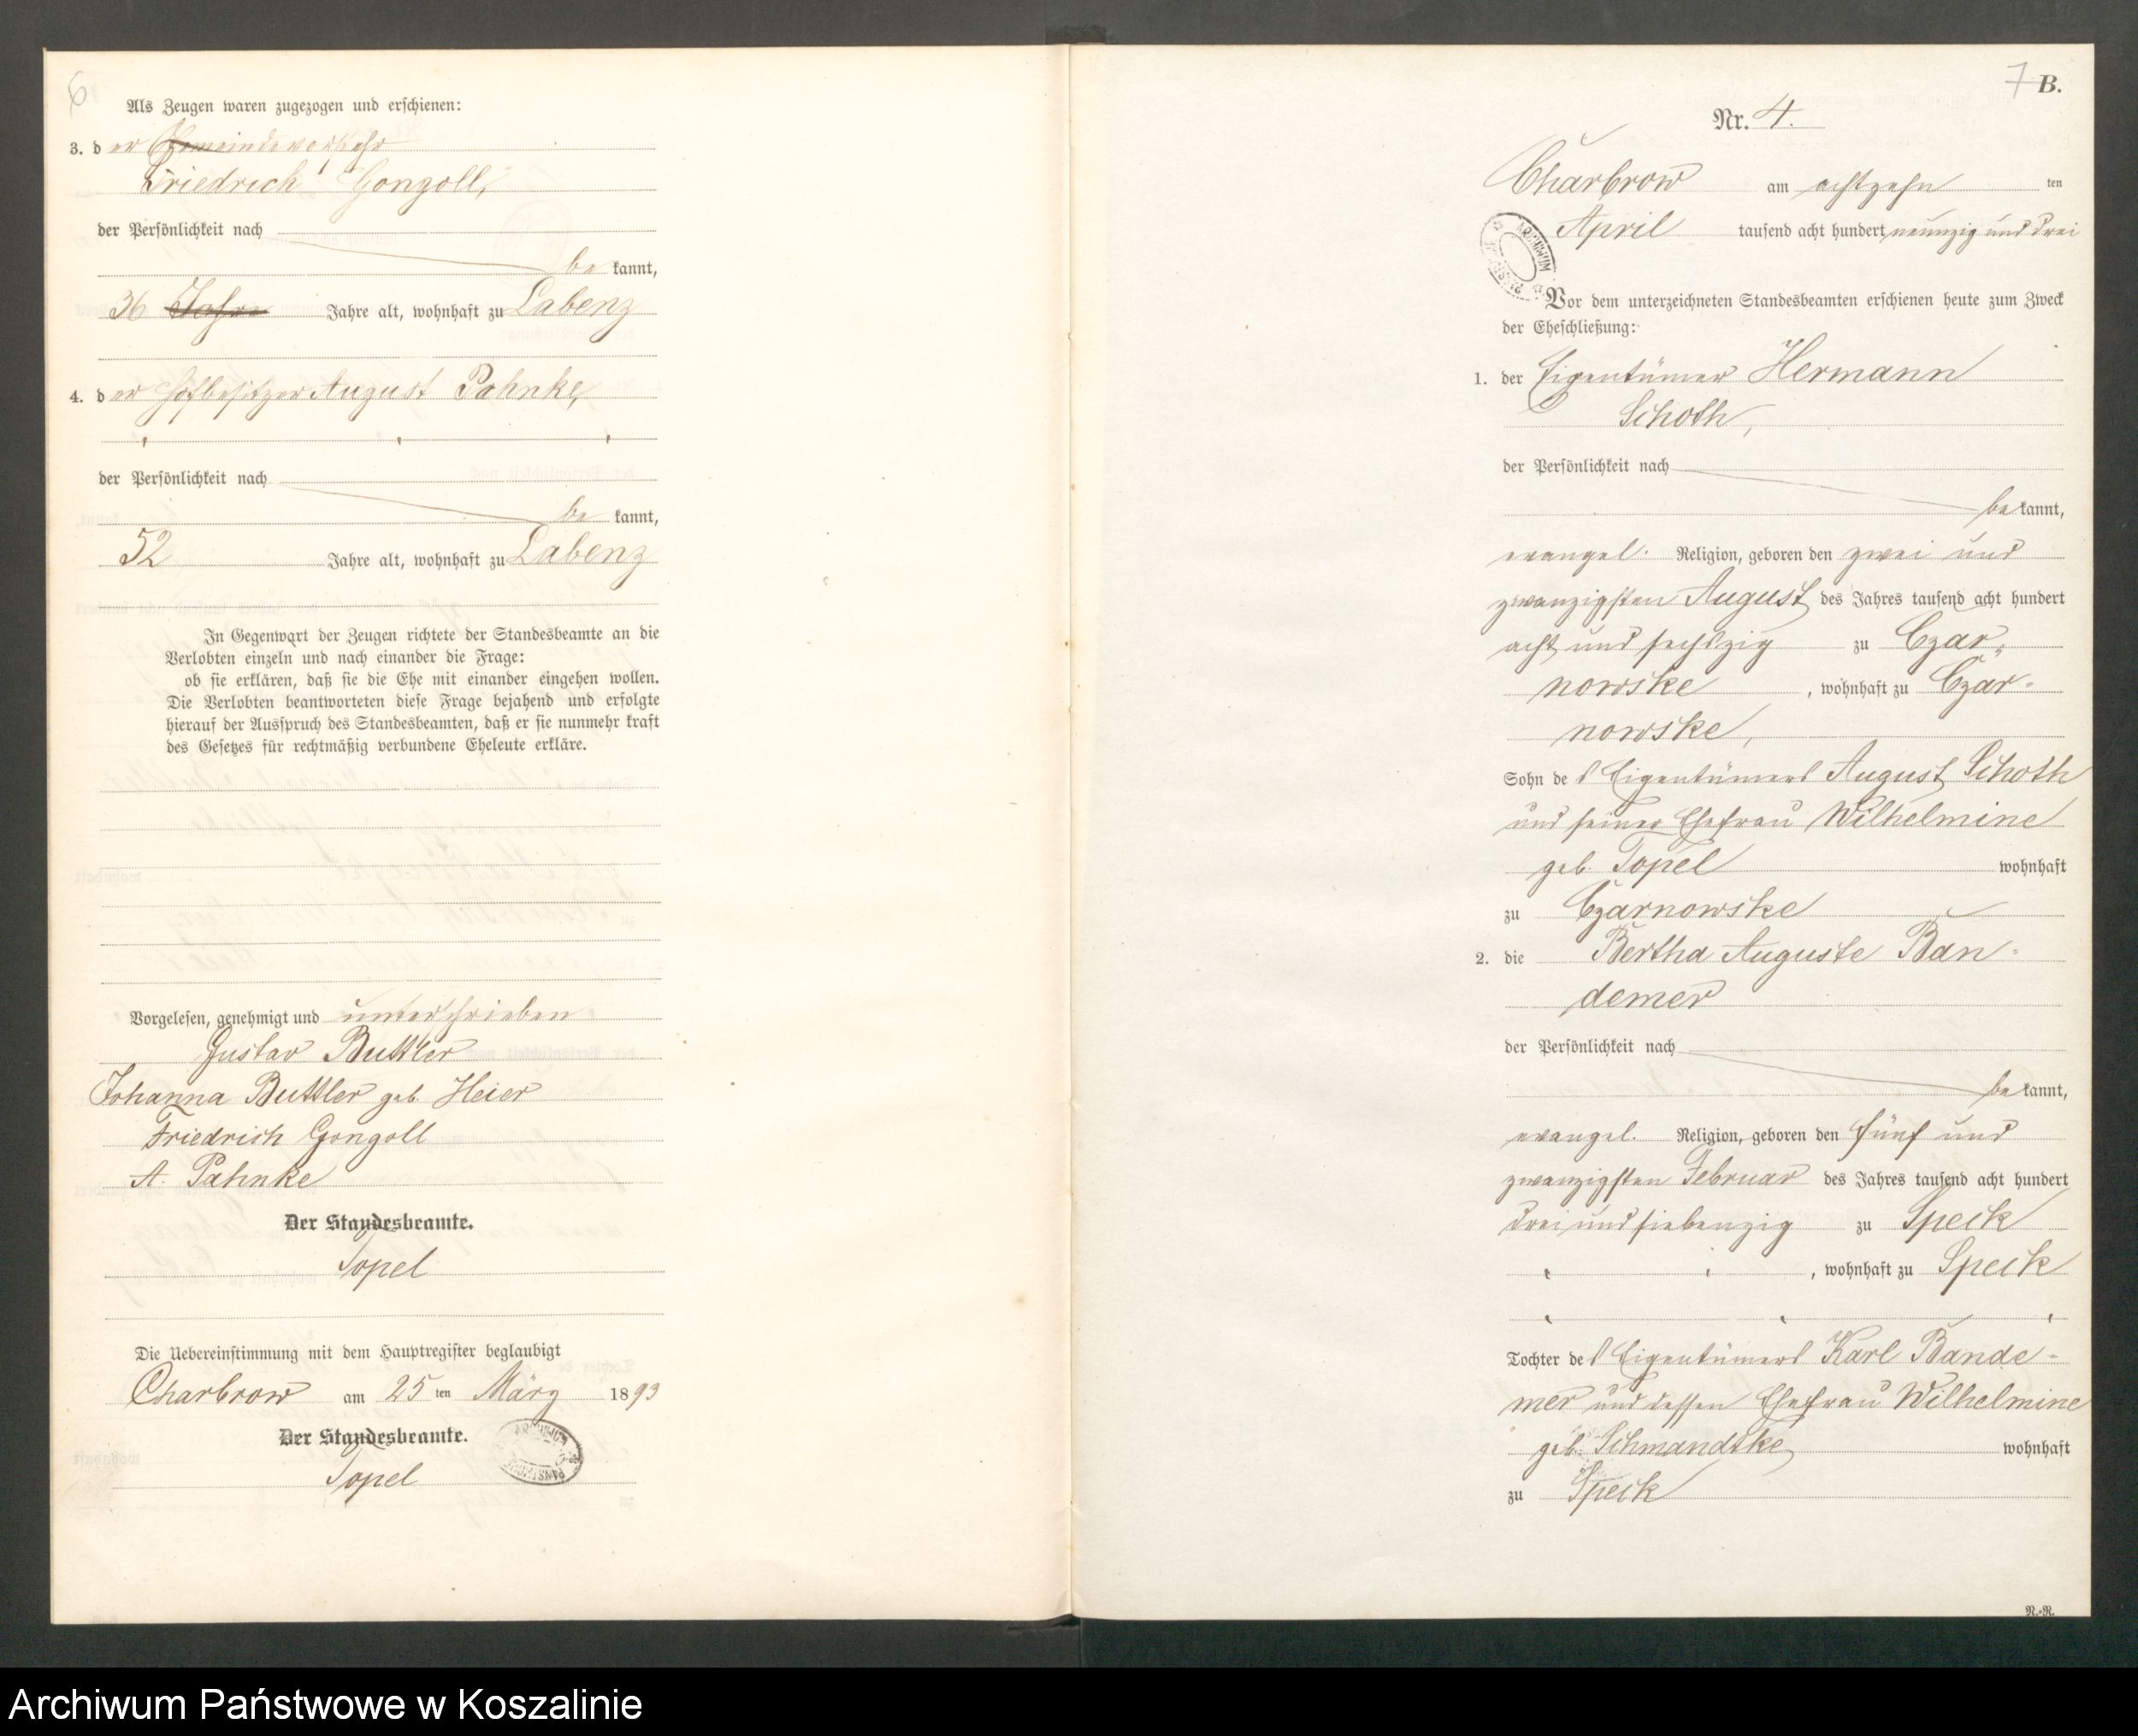 6
Als Zeugen waren zugezogen und erschienen:
3. der Gemeindevorsteher
Friedrich Gongoll,
der Persönlichkeit nach
be kannt,
36 Jahre Jahre alt, wohnhaft zu Labenz
4. der Hofbesitzer August Pahnke,
der Persönlichkeit nach
be kannt,
52 Jahre alt, wohnhaft zu Labenz
In Gegenwart der Zeugen richtete der Standesbeamte an die
Verlobten einzeln und nach einander die Frage:
ob sie erklären, daß sie die Ehe mit einander eingehen wollen.
Die Verlobten beantworteten diese Frage bejahend und erfolgte
hierauf der Ausspruch des Standesbeamten, daß er sie nunmehr kraft
des Gesetzes für rechtmäßig verbundene Eheleute erkläre.
Vorgelesen, genehmigt und unterschrieben
Gustav Buttler
Johanna Buttler geb. Heier
Friedrich Gongoll
A. Pahnke
Der Standesbeamte.
Topel
Die Uebereinstimmung mit dem Hauptregister beglaubigt
Charbrow am 25 ten März 1893
Der Standesbeamte.
Topel
7 B.
Nr. 4.
Charbrow am achtzehn ten
April tausend acht hundert neunzig und drei
Vor dem unterzeichneten Standesbeamten erschienen heute zum Zweck
der Eheschließung:
1. der Eigentümer Hermann
Schoth,
der Persönlichkeit nach
be kannt,
evangel. Religion, geboren den zwei und
zwanzigsten August des Jahres tausend acht hundert
acht und sechszig zu Czar-
nowske, wohnhaft zu Czar-
nowske,
Sohn des Eigentümers August Schoth
und seiner Ehefrau Wilhelmine
geb. Topel wohnhaft
zu Czarnowske
2. die Bertha Auguste Ban-
demer
der Persönlichkeit nach
be kannt,
evangel. Religion, geboren den fünf und
zwanzigsten Februar des Jahres tausend acht hundert
drei und siebenzig zu Speck
, wohnhaft zu Speck
Tochter des Eigentümers Karl Bande-
mer und dessen Ehefrau Wilhelmine
geb. Schmandtke wohnhaft
zu Speck
N.-R.
Archiwum Państwowe w Koszalinie